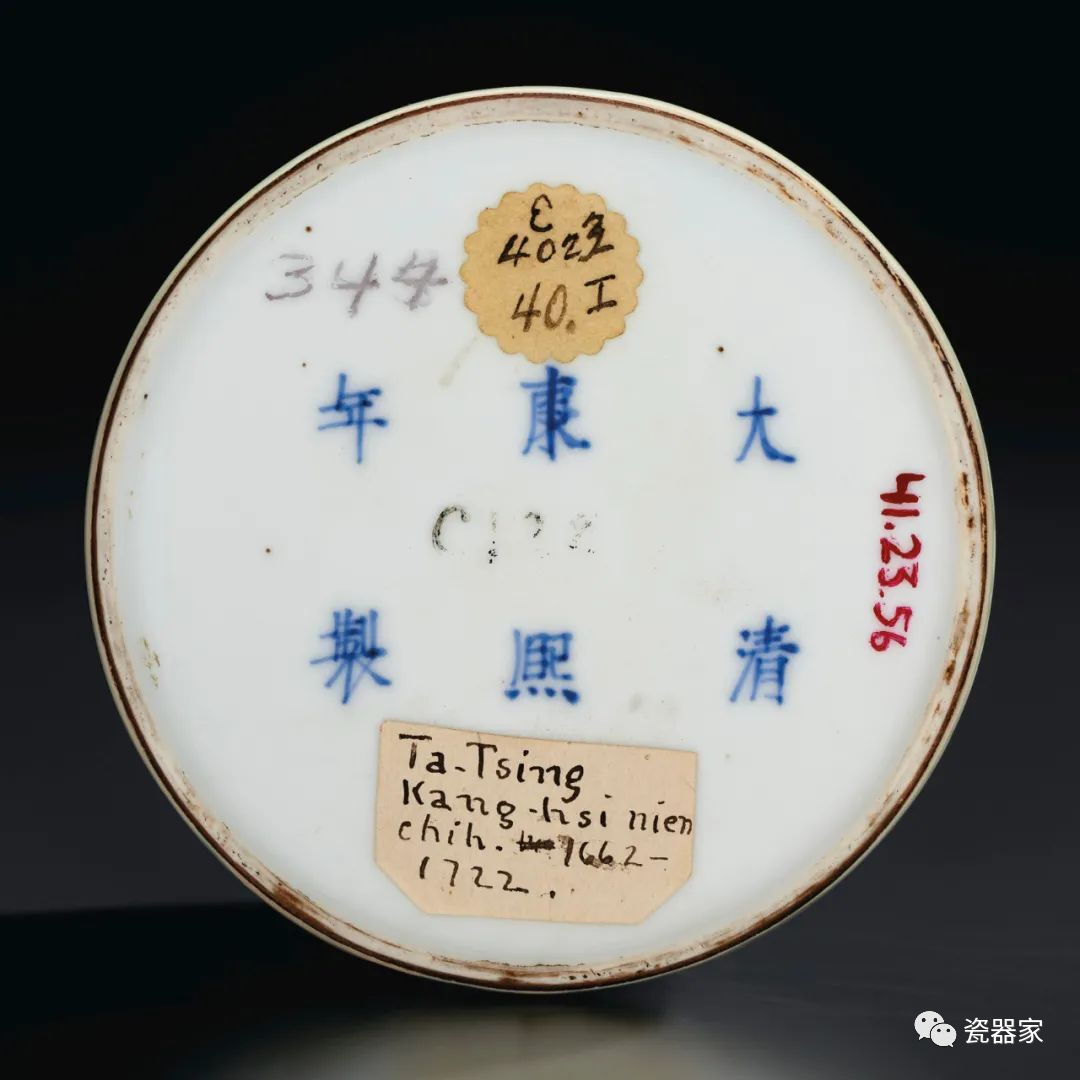 E
4023
40.I
344
大清
康熙
年製
C122
41.23.56
Ta-Tsing
Kang-hsi nien
chih. 1662-
1722.
瓷器家